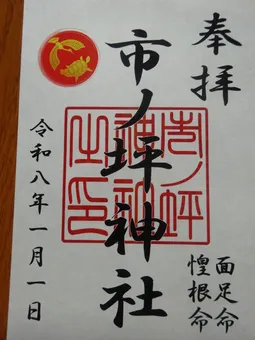 奉拝
市ノ坪神社
面足命
惶根命
令和八年一月一日